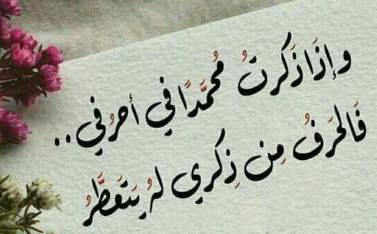 وإذَا ذَكرتُ مُحمَّدًا في أحرُفي ..
فَالحَرفُ مِن ذِكرِي لهُ يَتَعَطَّرُ